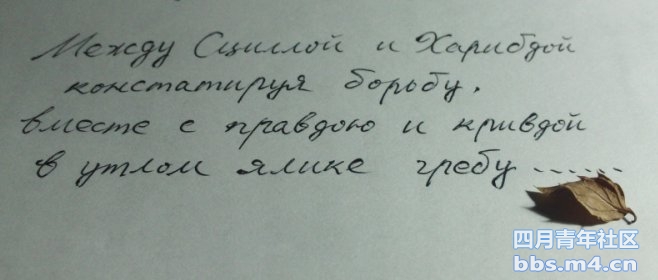 Между Сциллой и Харибдой
констатируя борьбу,
вместе с правдою и кривдой
в утлом ялике гребу ......
四月青年社区
bbs.m4.cn